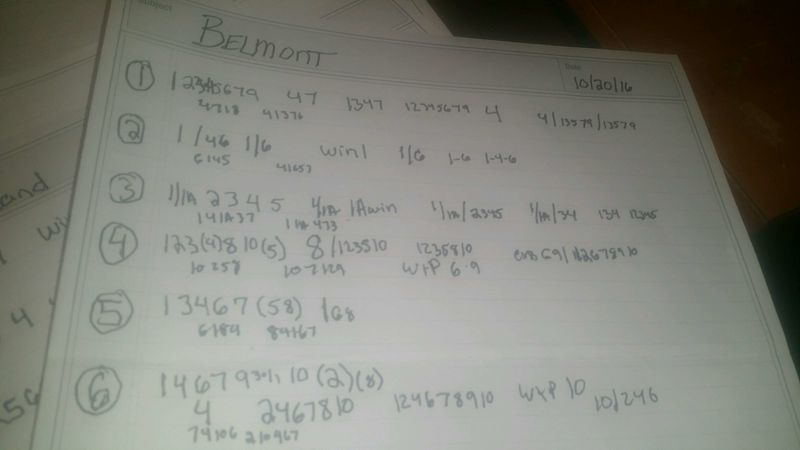 Subject
BELMONT
Date
10/20/16
① 47 1347 12345679 4 4/13579/13579
4718 41376
② 1/46 1/6 win 1 1/6 1-6 1-4-6
6145 41653
③ 1/1A 2345 1/1A 1Awin 1/1A/2345 1/1A/34 134 12345
141A37 11A473
④ 123(4)810(5) 8/123510 1235810
10258 102129 WXP 6-9
⑤ 13467(58) 168
6184 84167
⑥ 146793 10(2)(8)
4 2467810 124678910 WXP 10 10/246
74106 210967
and